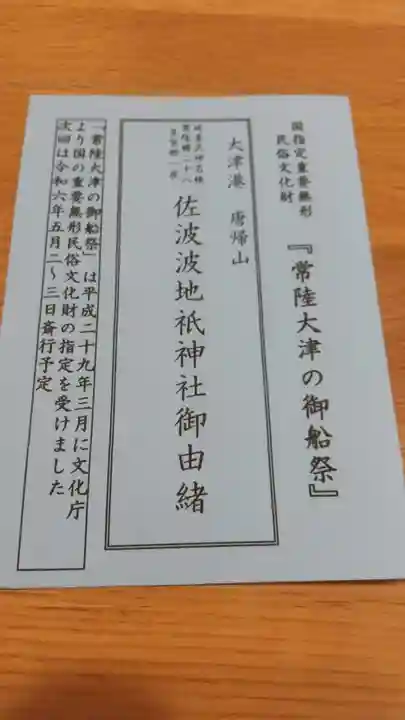 国指定重要無形
民俗文化財
『常陸大津の御船祭』
大津港 唐帰山
延喜式神名標
常陸国二十八
多賀郡一座
佐波波地祇神社御由緒
「常陸大津の御船祭」は平成二十九年三月に文化庁
より国の重要無形民俗文化財の指定を受けました
次回は令和六年五月二～三日斎行予定